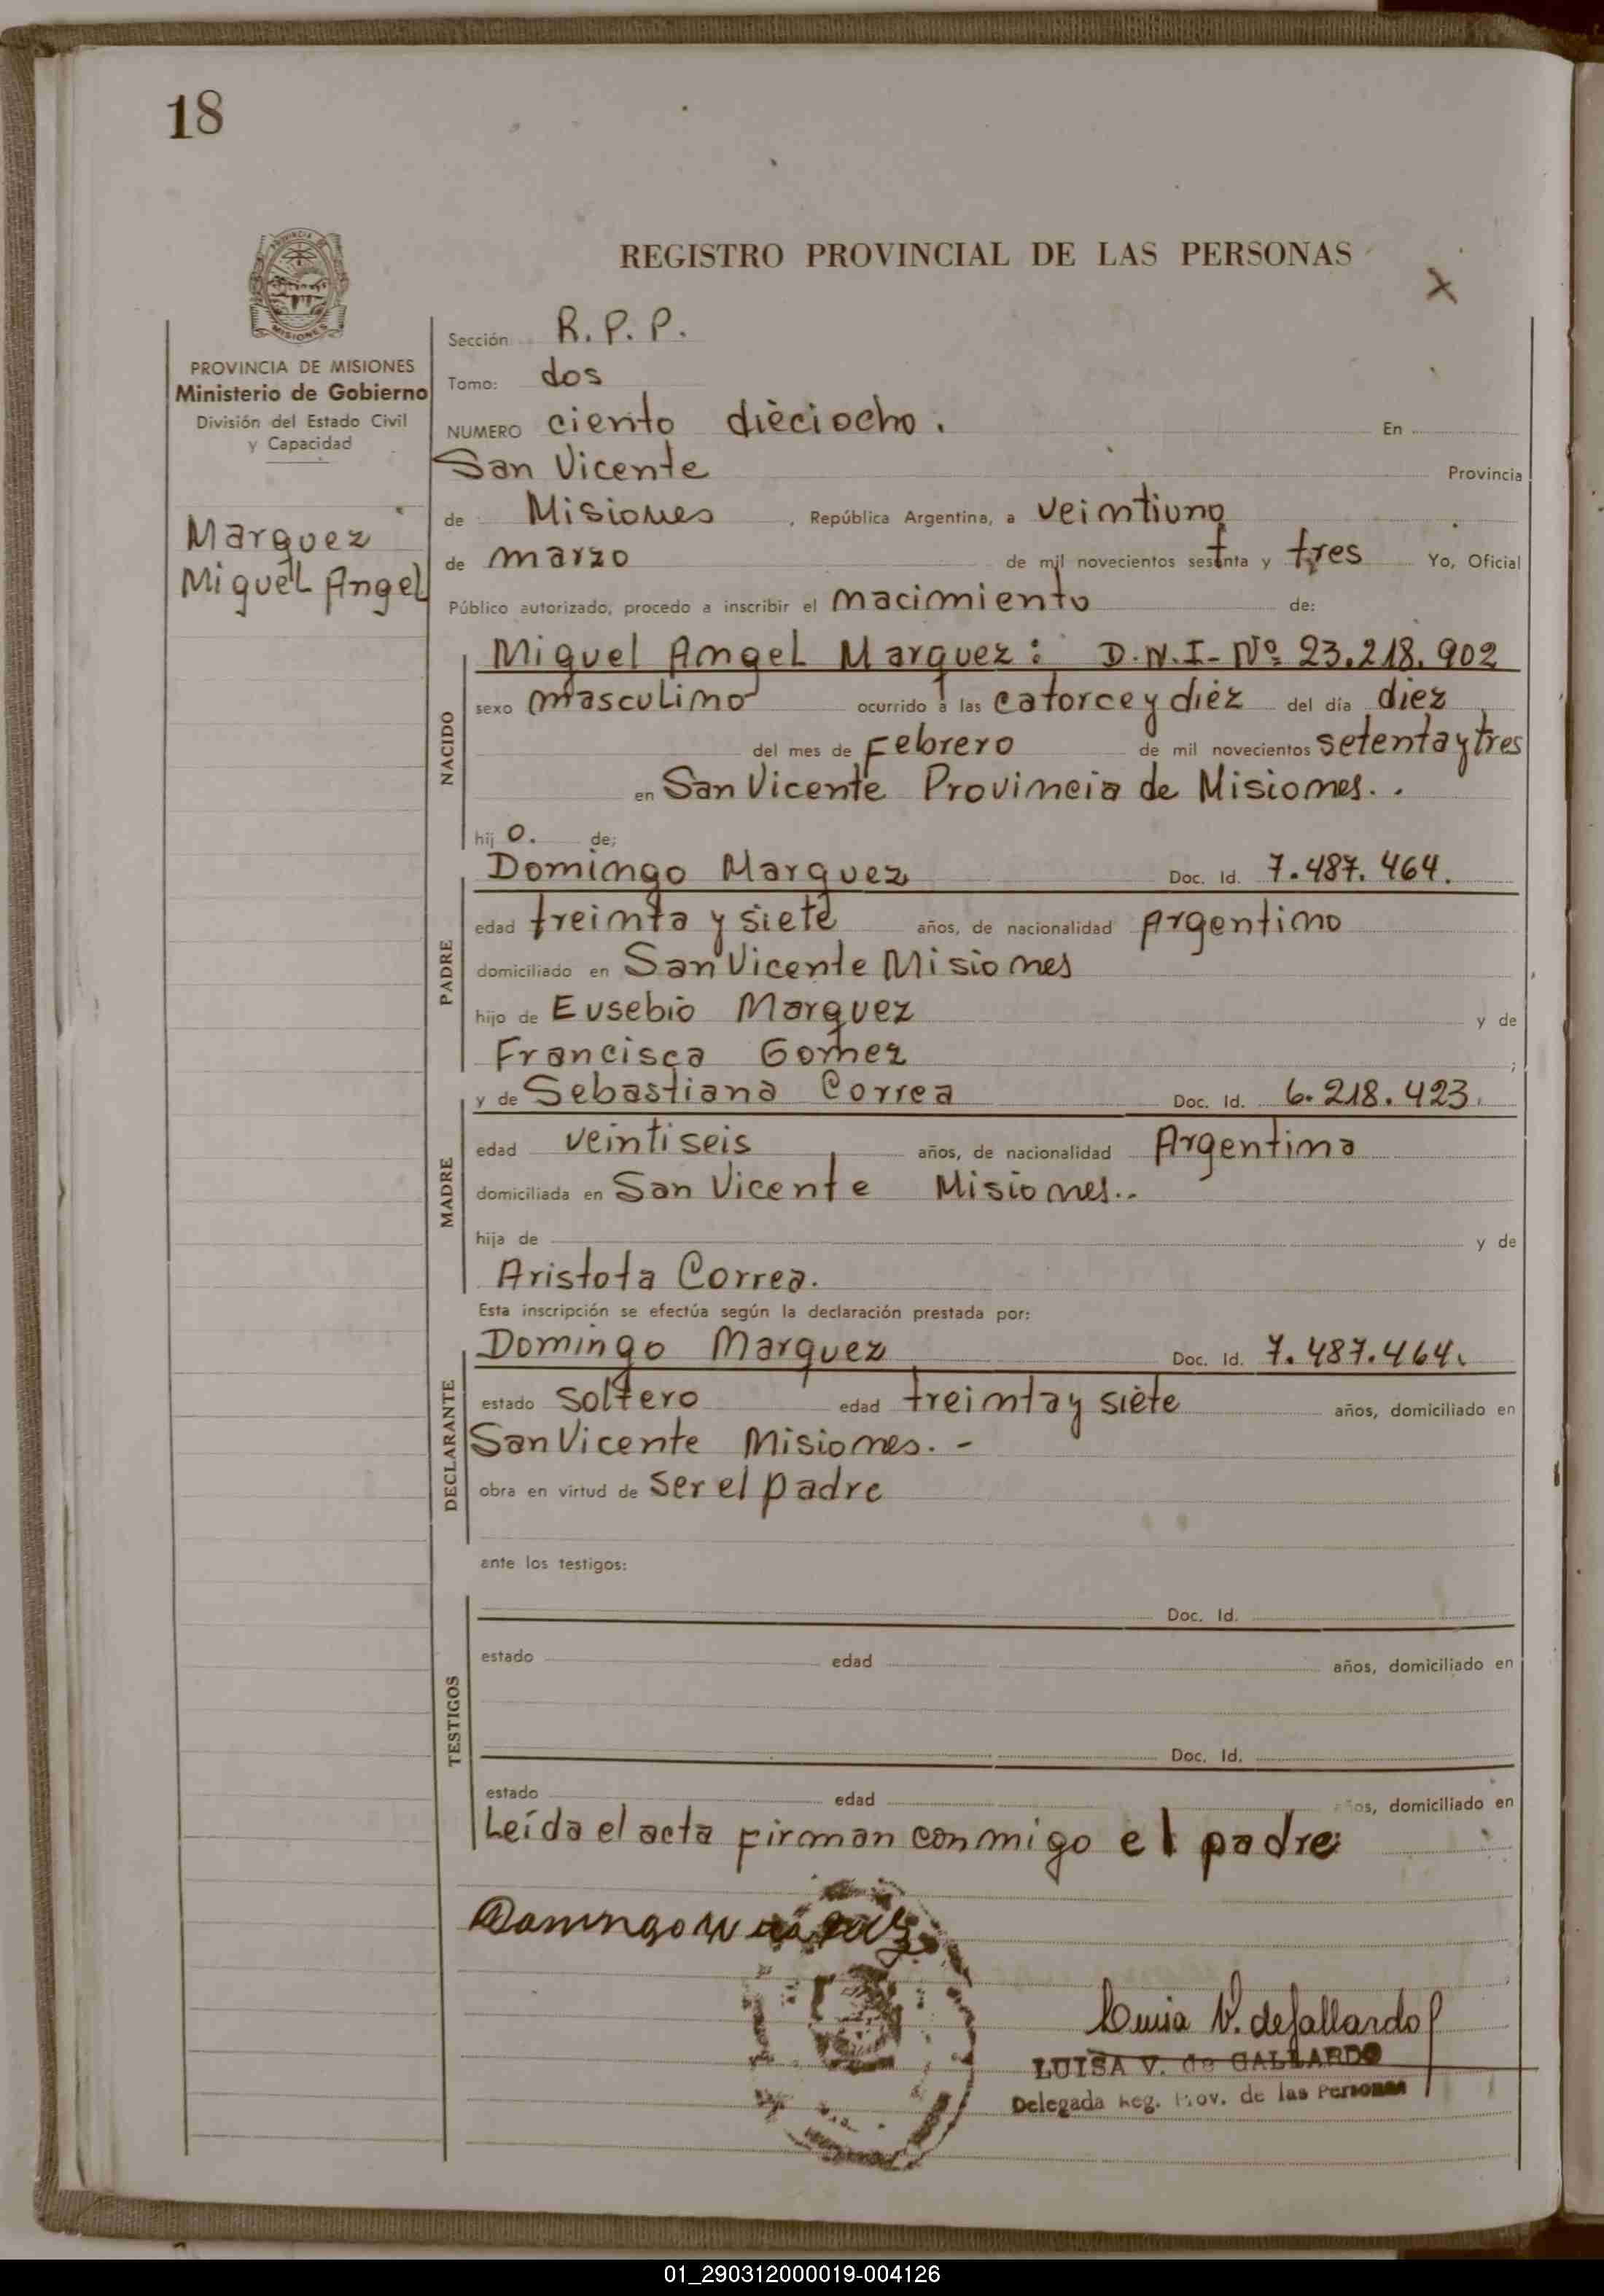 18
REGISTRO PROVINCIAL DE LAS PERSONAS
X
PROVINCIA DE
MISIONES
PROVINCIA DE MISIONES
Ministerio de Gobierno
División del Estado Civil
y Capacidad
Marquez
Miguel Angel
Sección R. P. P.
Tomo: dos
NUMERO ciento dieciocho. En
San Vicente Provincia
de Misiones, República Argentina, a veintiuno
de marzo de mil novecientos setenta y tres Yo, Oficial
Público autorizado, procedo a inscribir el nacimiento de:
NACIDO
Miguel Angel Marquez: D.N.I- Nº 23.218.902
sexo masculino ocurrido a las catorce y diez del día diez
del mes de Febrero de mil novecientos setenta y tres
en San Vicente Provincia de Misiones..
hij o. de:
PADRE
Domingo Marquez Doc. Id. 7.487.464.
edad treinta y siete años, de nacionalidad Argentino
domiciliado en San Vicente Misiones
hijo de Eusebio Marquez y de
Francisca Gomez ;
MADRE
y de Sebastiana Correa Doc. Id. 6.218.423.
edad veintiseis años, de nacionalidad Argentina
domiciliada en San Vicente Misiones..
hija de y de
Aristota Correa.
Esta inscripción se efectúa según la declaración prestada por:
DECLARANTE
Domingo Marquez Doc. Id. 7.487.464.
estado soltero edad treinta y siete años, domiciliado en
San Vicente Misiones. -
obra en virtud de ser el padre
ante los testigos:
TESTIGOS
Doc. Id.
estado edad años, domiciliado en
Doc. Id.
estado edad años, domiciliado en
Leída el acta firman conmigo el padre:
Domingo Marquez
Luisa V. de Gallardo
LUISA V. de GALLARDO
Delegada Reg. Prov. de las Personas
01_290312000019-004126